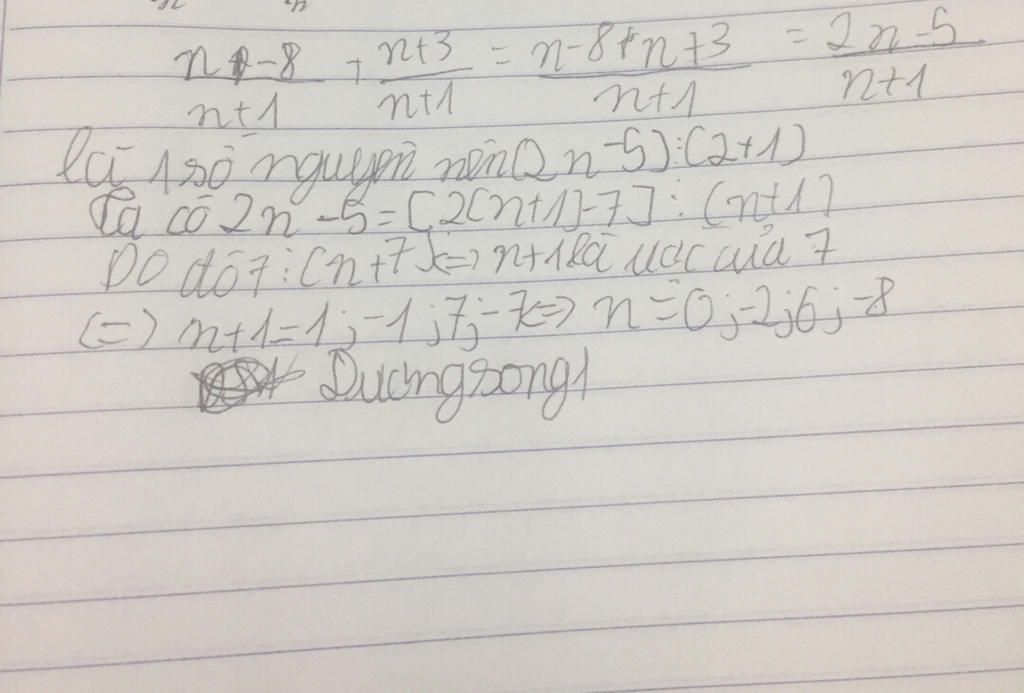 n-8/n+1 + n+3/n+1 = n-8+n+3/n+1 = 2n-5/n+1
là 1 số nguyên nên (2n-5)⋮(2+1)
Ta có 2n-5=[2(n+1)-7]⋮(n+1)
Do đó 7⋮(n+7)<=> n+1 là ước của 7
<=> n+1=1;-1;7;-7<=> n=0;-2;6;-8
Duongsong1